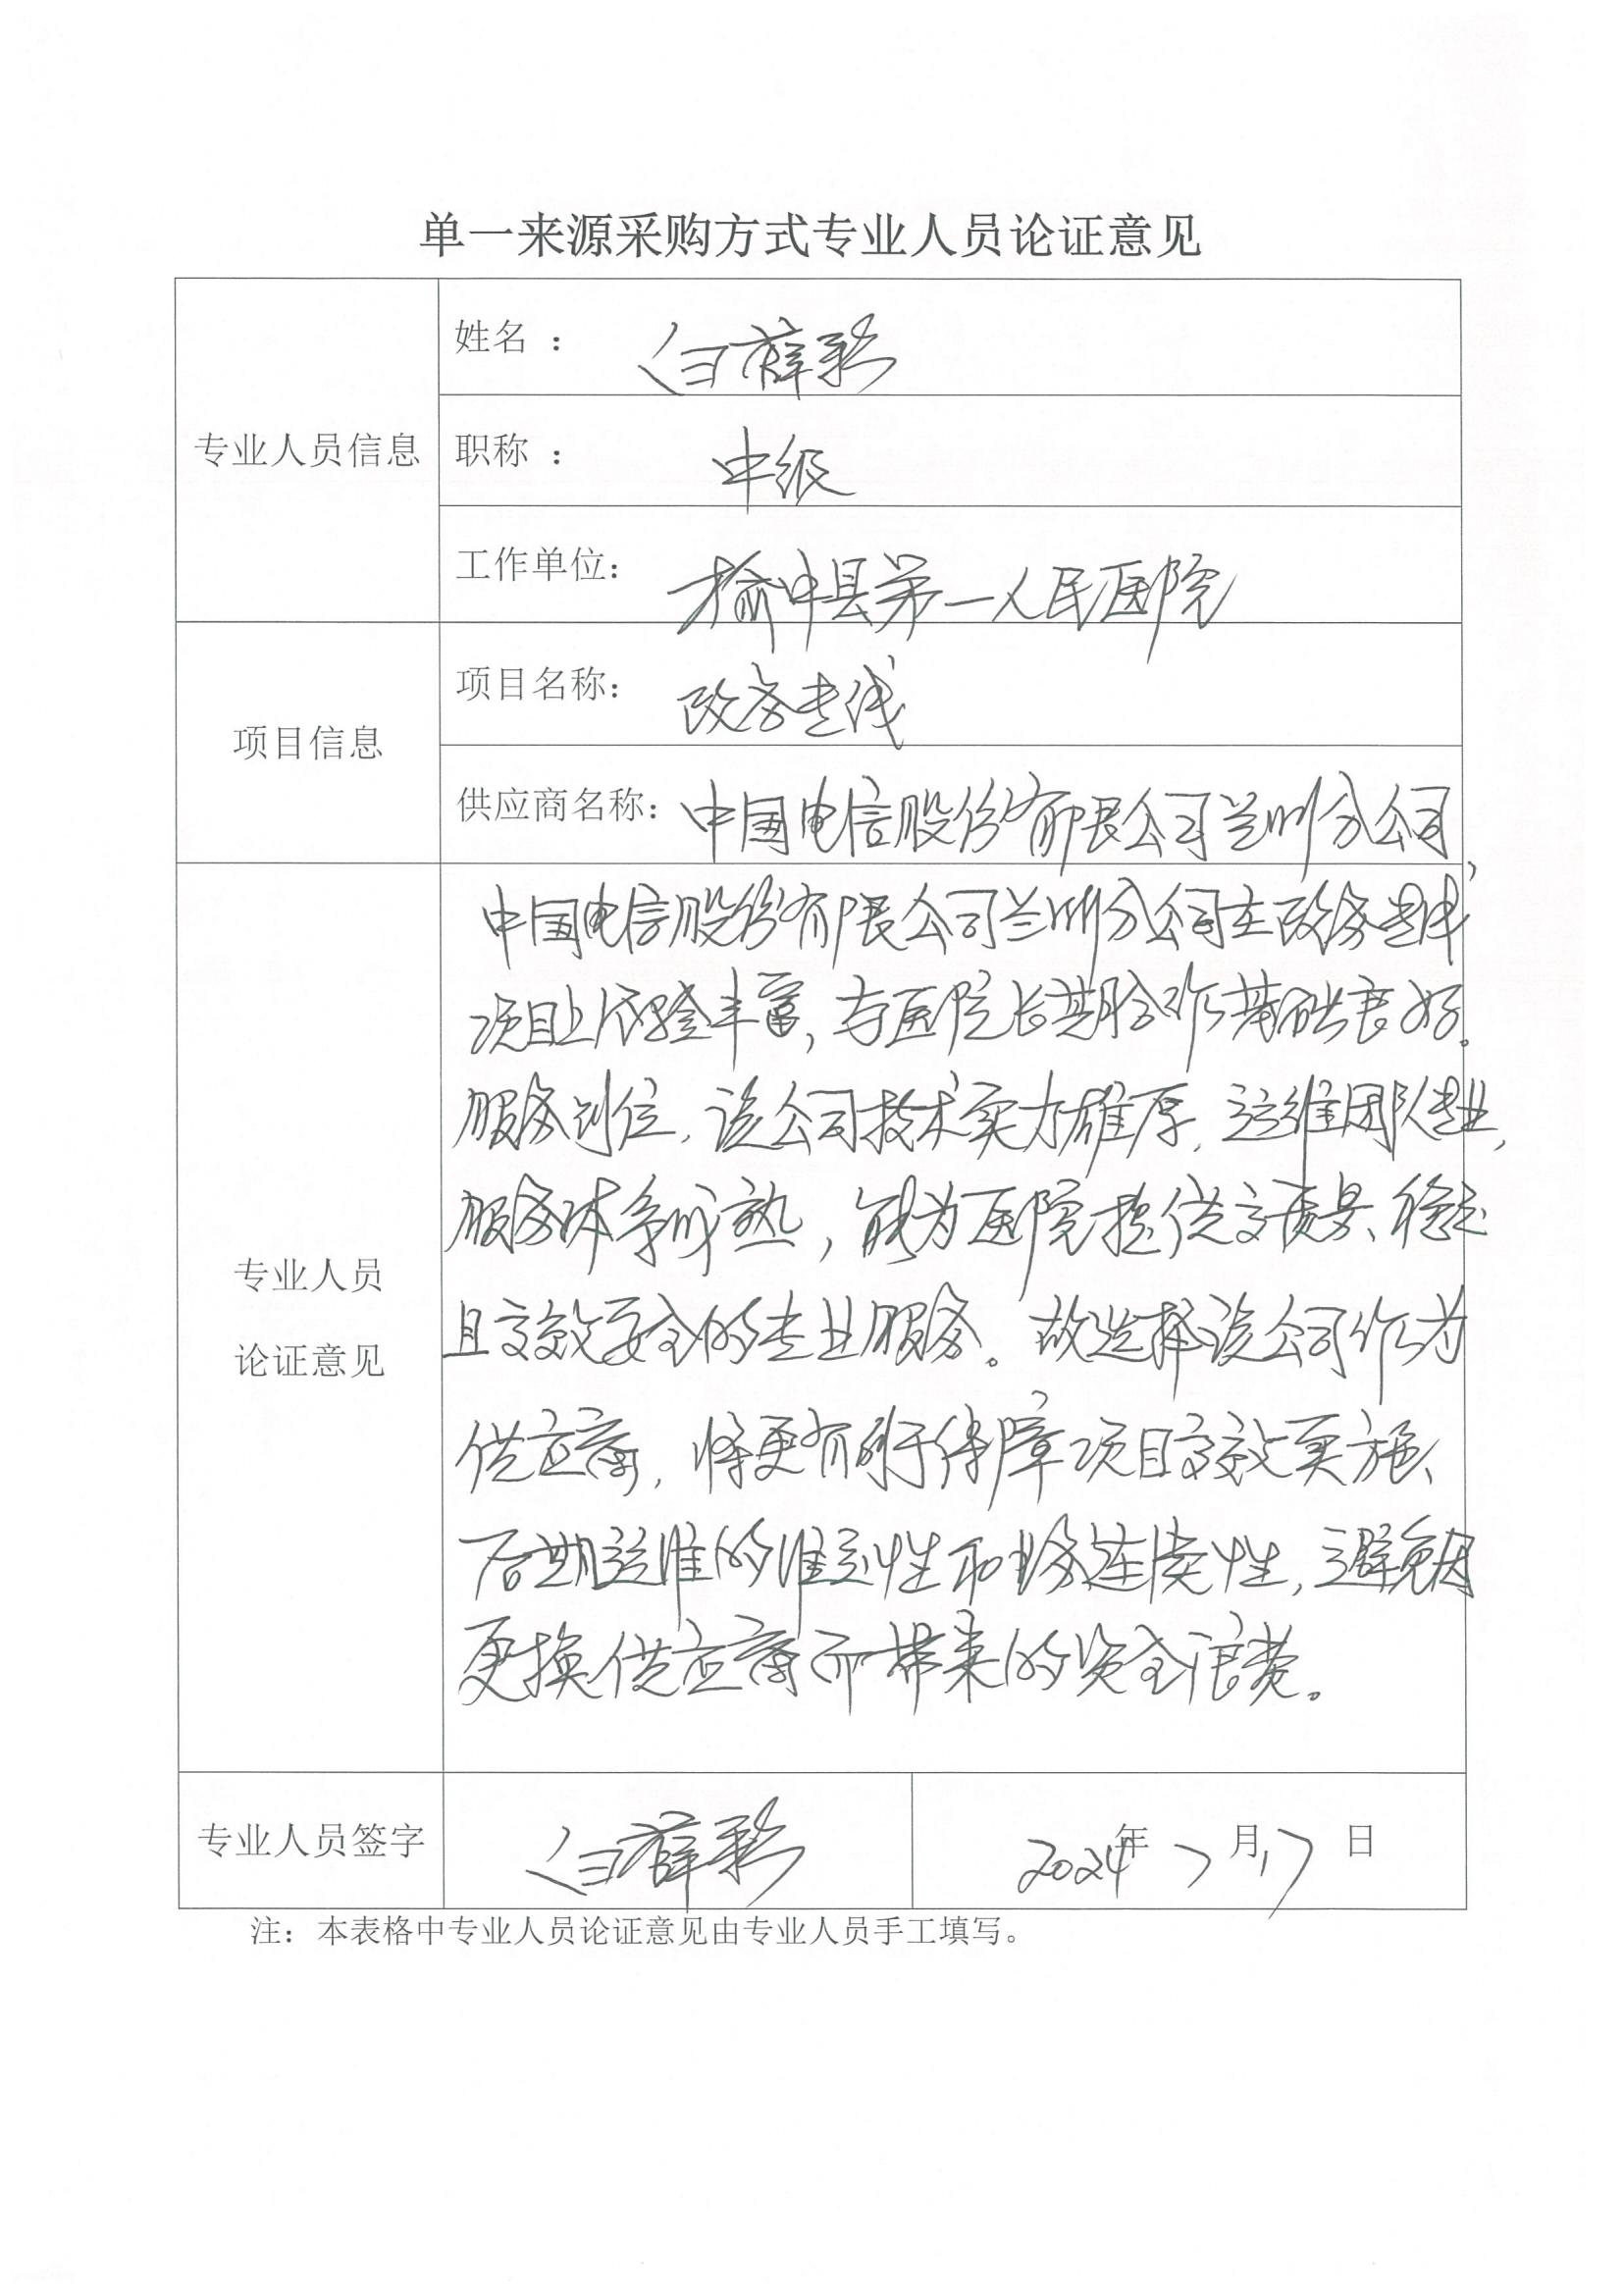 单一来源采购方式专业人员论证意见
专业人员信息
姓名：白薛彩
职称：中级
工作单位：榆中县第一人民医院
项目信息
项目名称：政务专线
供应商名称：中国电信股份有限公司兰州分公司
专业人员
论证意见
中国电信股份有限公司兰州分公司在政务专线
项目上经验丰富，与医院长期合作基础良好。
服务到位，该公司技术实力雄厚，运维团队专业，
服务体系成熟，能为医院提供高质量、稳定
且高效安全的专业服务。故选择该公司作为
供应商，将更有利于保障项目高效实施、
后期运维的稳定性和业务连续性，避免因
更换供应商而带来的资金浪费。
专业人员签字
白薛彩
2024年7月17日
注：本表格中专业人员论证意见由专业人员手工填写。